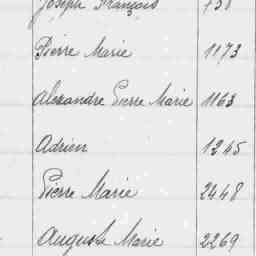 Joseph François 738
Pierre Marie 1173
Alexandre Pierre Marie 1163
Adrien 1245
Pierre Marie 2448
Auguste Marie 2269